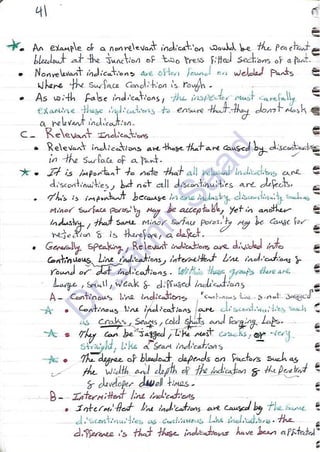 41
* • An example of a nonrelevant indication would be the Penetrant
bleedout at the Junction of two Press fitted Sections of a part.
• Nonrelevant indications are often found on welded Parts
where the Surface Condition is rough.
• As with false indications, the inspector must carefully
examine these indications to ensure that they don't mask
a relevant indication.
C - Relevant Indications
• Relevant indications are those that are caused by discontinuities
in the Surface of a part.
* • It is important to note that all relevant indications are
discontinuities, but not all discontinuities are defects.
• This is important because in one industry, discontinuity such as
minor surface porosity may be acceptable, yet in another
industry, that same minor surface porosity may be cause for
rejection & is therefore, a defect.
• Generally speaking, Relevant indications are divided into
Continuous Line indications, intermittent line indications &
round or dot indications. Within these groups there are
Large, Small, Weak & diffused indications
A - Continous line indications "Continuous line is not Jagged"
* • Continous line indications are discontinuities such
as Cracks, Seams, Cold Shuts and forging Laps.
* • They can be Jagged like most cracks, or very
straight, like a seam indications
* • The degree of bleedout depends on factors such as
the width and depth of the indication & the Penetrant
& developer dwell times.
B - Intermittent line indications
• Intermittent line indications are caused by the same
discontinuities as continuous line indications. the
difference is that these indications have been affected